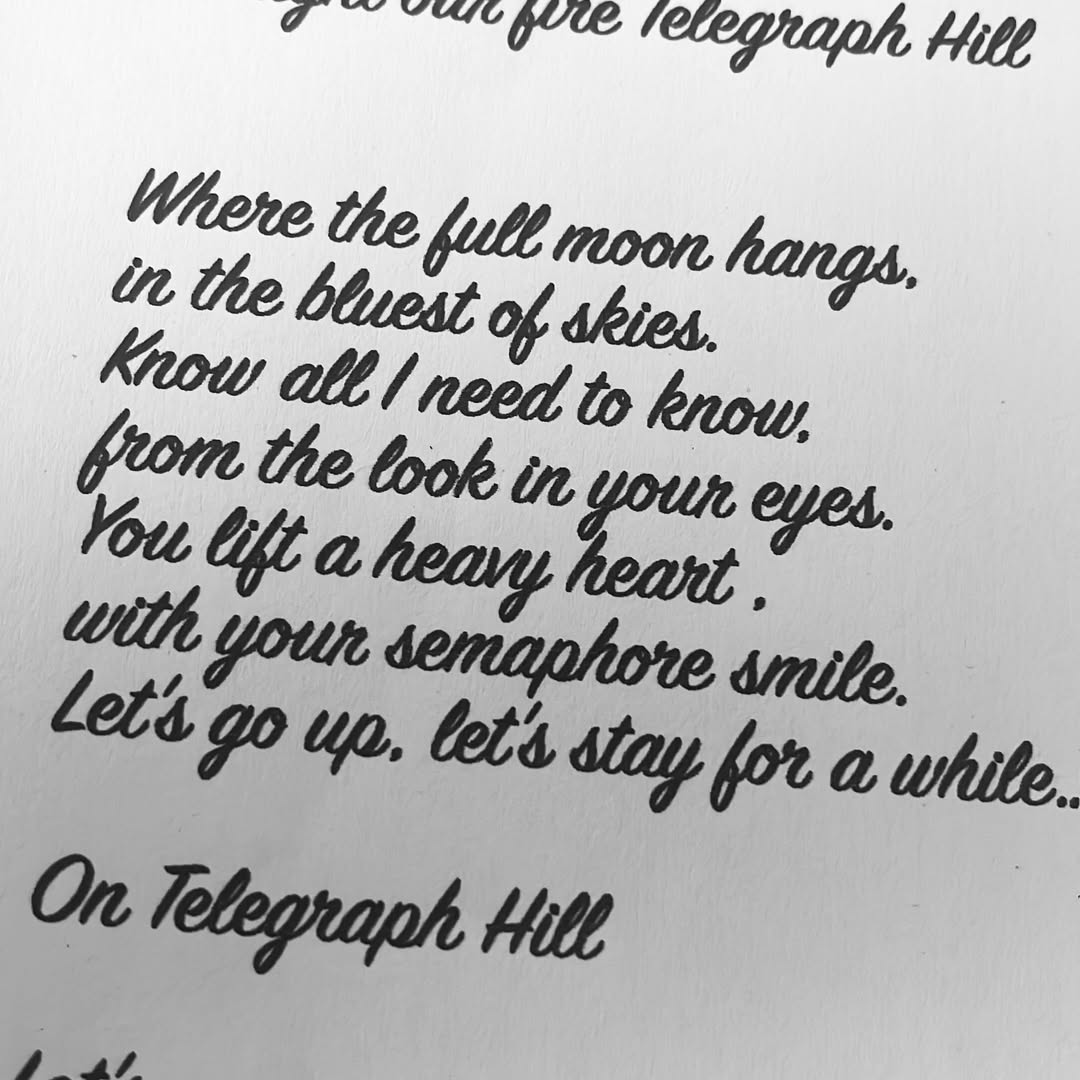 our fire Telegraph Hill
Where the full moon hangs,
in the bluest of skies.
Know all I need to know,
from the look in your eyes.
You lift a heavy heart ,
with your semaphore smile.
Let's go up, let's stay for a while..
On Telegraph Hill
Let's